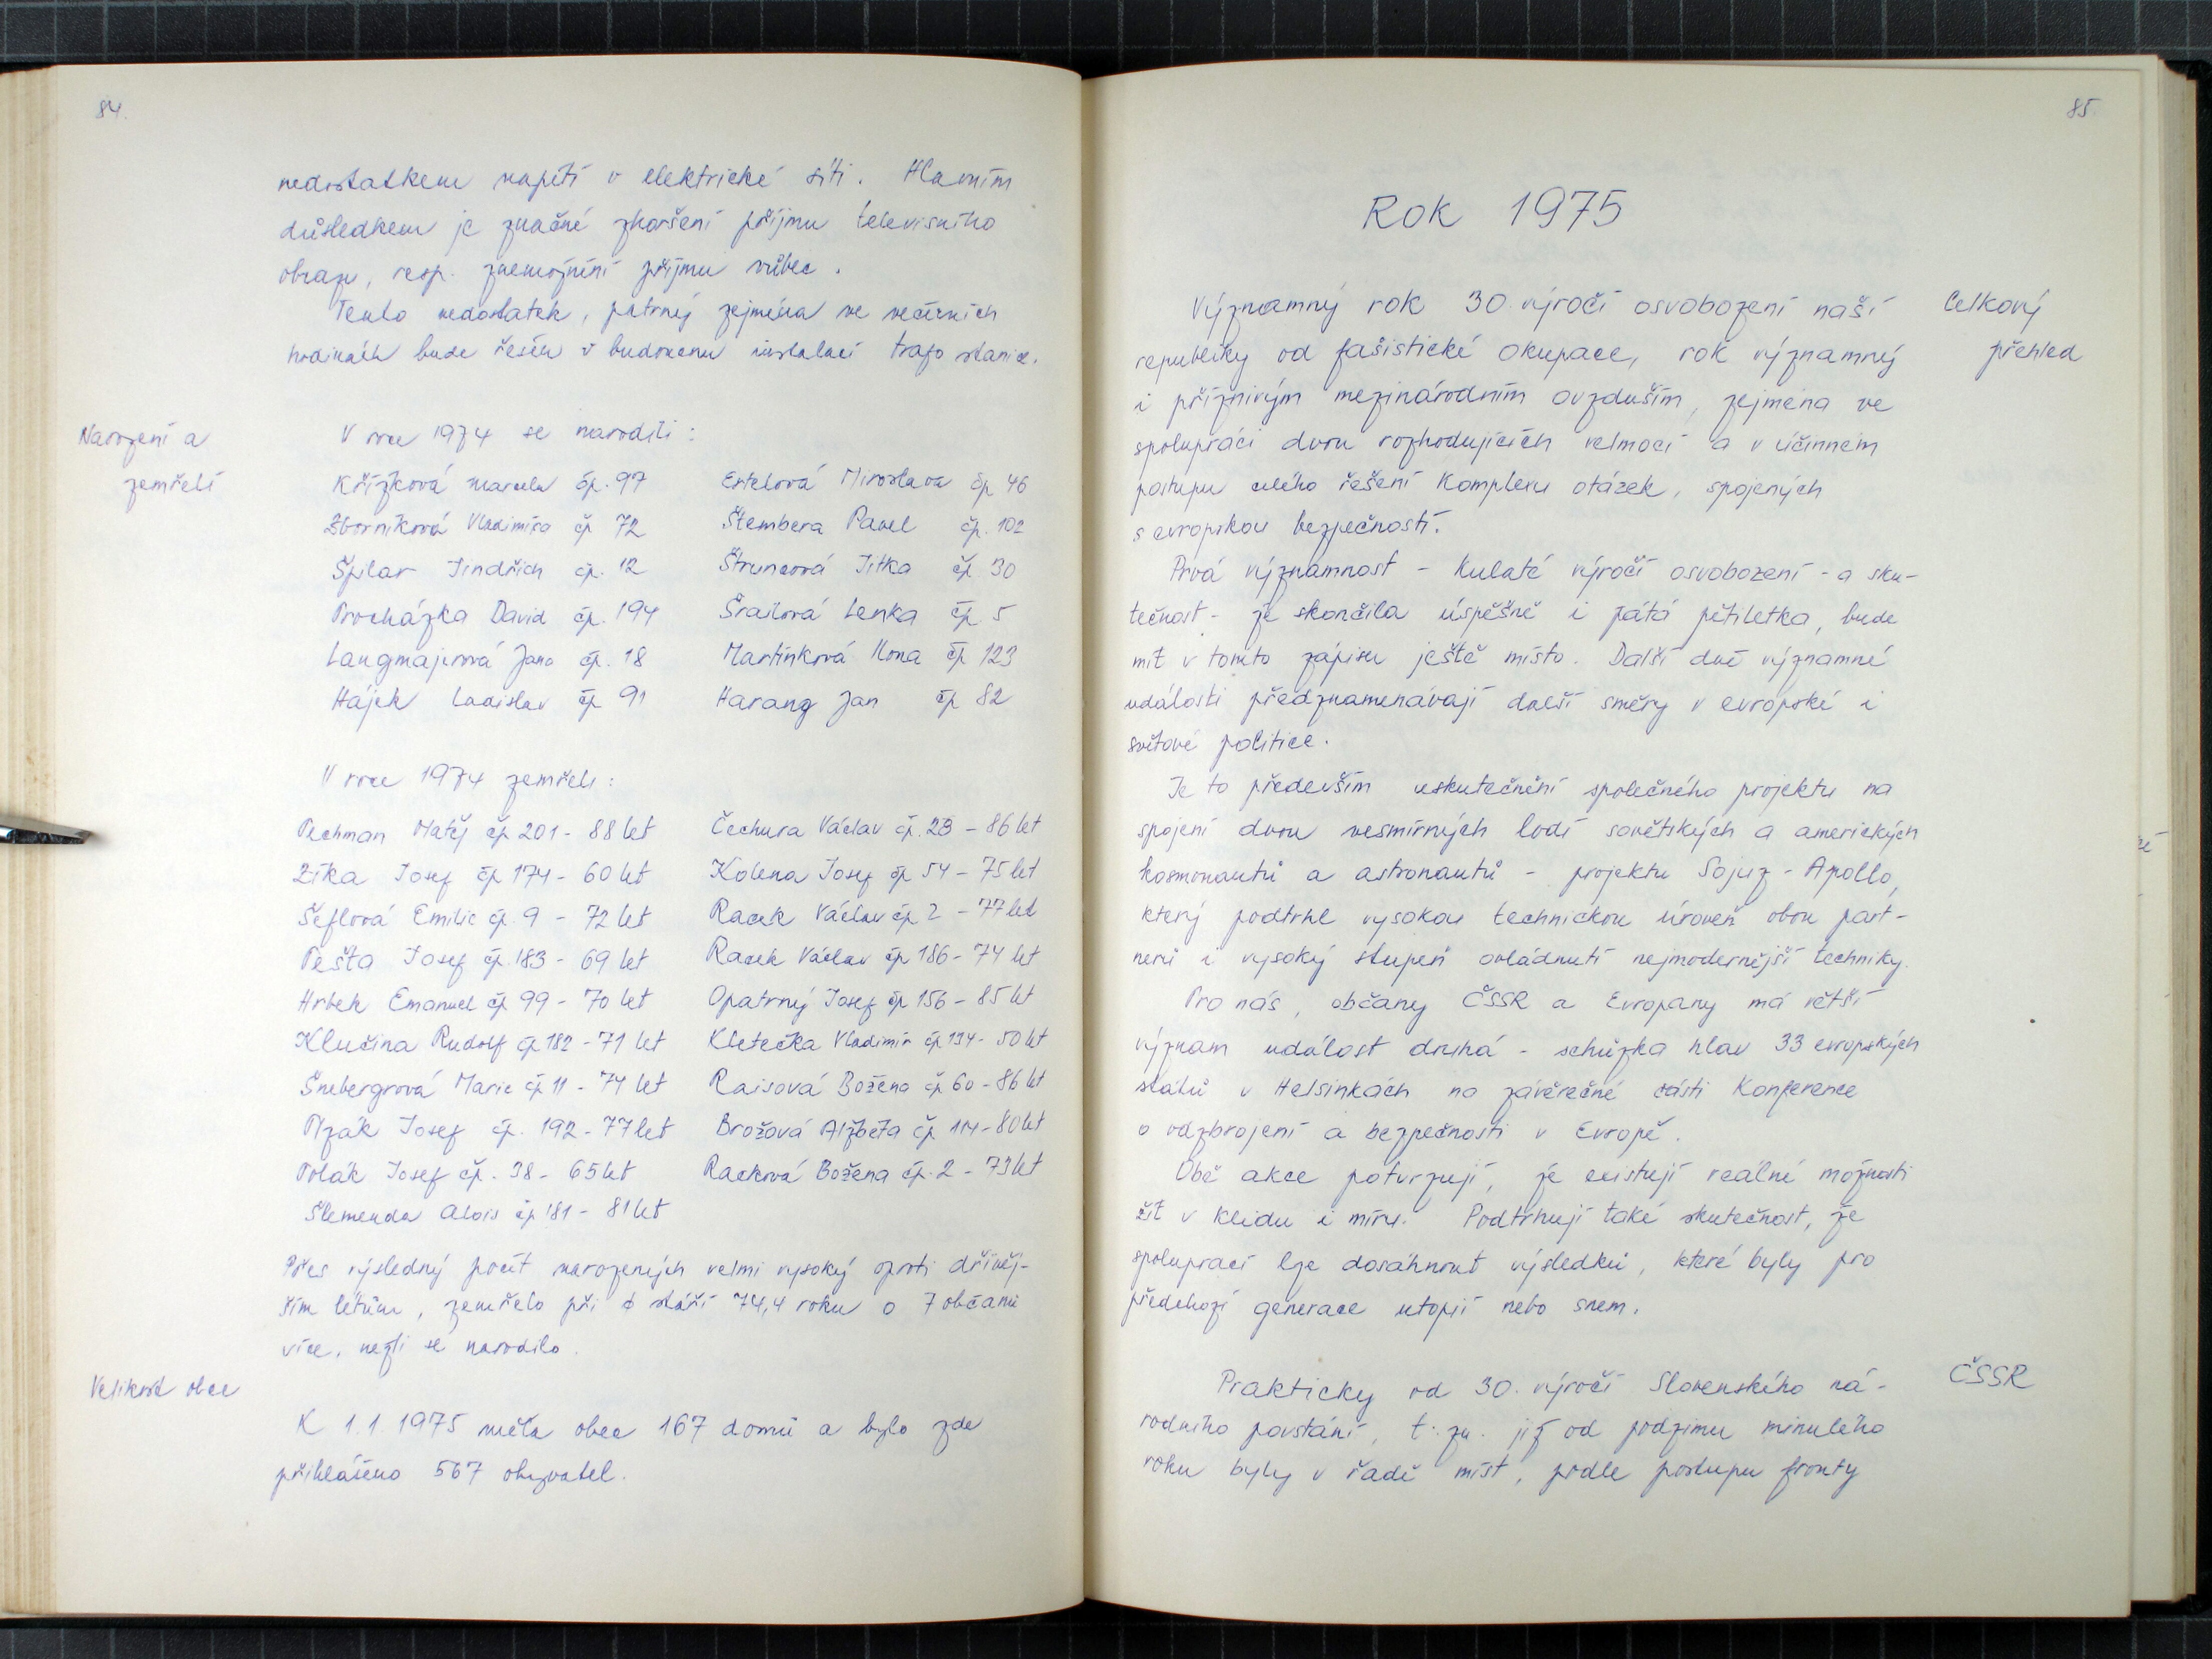 84.
nedostatkem napětí v elektrické síti. Hlavním
důsledkem je značné zhoršení příjmu televisního
obrazu, resp. znemožnění příjmu vůbec.
Tento nedostatek, patrný zejména ve večerních
hodinách bude řešen v budoucnu instalací trafo stanice.
Narození a
zemřelí
V roce 1974 se narodili:
Křížková Marcela čp. 97 Estelová Miroslava čp 46
Zborníková Vladimíra čp 72 Štembera Pavel čp. 102
Špilar Jindřich čp. 12 Štruncová Jitka čp. 30
Procházka David čp. 194 Šrailová Lenka čp 5
Langmajerová Jana čp. 18 Martínková Ilona čp 123
Hájek Ladislav čp 91 Harang Jan čp 82
V roce 1974 zemřeli:
Pechman Matěj čp 201 - 88 let Čechura Václav čp. 23 - 86 let
Zíka Josef čp 174 - 60 let Kolena Josef čp 54 - 75 let
Šeflová Emilie čp. 9 - 72 let Racek Václav čp 2 - 77 let
Pešta Josef čp. 183 - 69 let Racek Václav čp 186 - 74 let
Hrbek Emanuel čp 99 - 70 let Opatrný Josef čp 156 - 85 let
Klučina Rudolf čp 182 - 71 let Kletečka Vladimír čp 134 - 50 let
Šnebergrová Marie čp 11 - 74 let Raisová Božena čp 60 - 86 let
Plzák Josef čp. 192 - 77 let Brožová Alžběta čp 114 - 80 let
Polák Josef čp. 38 - 65 let Racková Božena čp. 2 - 73 let
Slemenda Alois čp 181 - 81 let
Přes výsledný počet narozených velmi vysoký oproti dřívěj-
ším létům, zemřelo při ϕ stáří 74,4 roku o 7 občanů
více, nežli se narodilo.
Velikost obce
K 1.1.1975 měla obec 167 domů a bylo zde
přihlášeno 567 obyvatel.
85.
Rok 1975
Celkový
přehled
Významný rok 30. výročí osvobození naší
republiky od fašistické okupace, rok významný
i příznivým mezinárodním ovzduším, zejména ve
spolupráci dvou rozhodujících velmocí a v účinném
postupu celého řešení komplexu otázek, spojených
s evropskou bezpečností.
Prvá významnost - kulaté výročí osvobození - a sku-
tečnost - že skončila úspěšně i pátá pětiletka, bude
mít v tomto zápisu ještě místo. Další dvě významné
události předznamenávají další směry v evropské i
světové politice.
Je to především uskutečnění společného projektu na
spojení dvou vesmírných lodí sovětských a amerických
kosmonautů a astronautů - projektu Sojuz - Apollo,
který podtrhl vysokou technickou úroveň obou part-
nerů i vysoký stupeň ovládnutí nejmodernější techniky.
Pro nás, občany ČSSR a Evropany má větší
význam událost druhá - schůzka hlav 33 evropských
států v Helsinkách na závěrečné části Konference
o odzbrojení a bezpečnosti v Evropě.
Obě akce potvrzují, že existují reálné možnosti
žít v klidu i míru. Podtrhují také skutečnost, že
spoluprací lze dosáhnout výsledků, které byly pro
předchozí generace utopií nebo snem.
ČSSR
Prakticky od 30. výročí Slovenského ná-
rodního povstání, t. zn. již od podzimu minulého
roku byly v řadě míst, podle postupu fronty